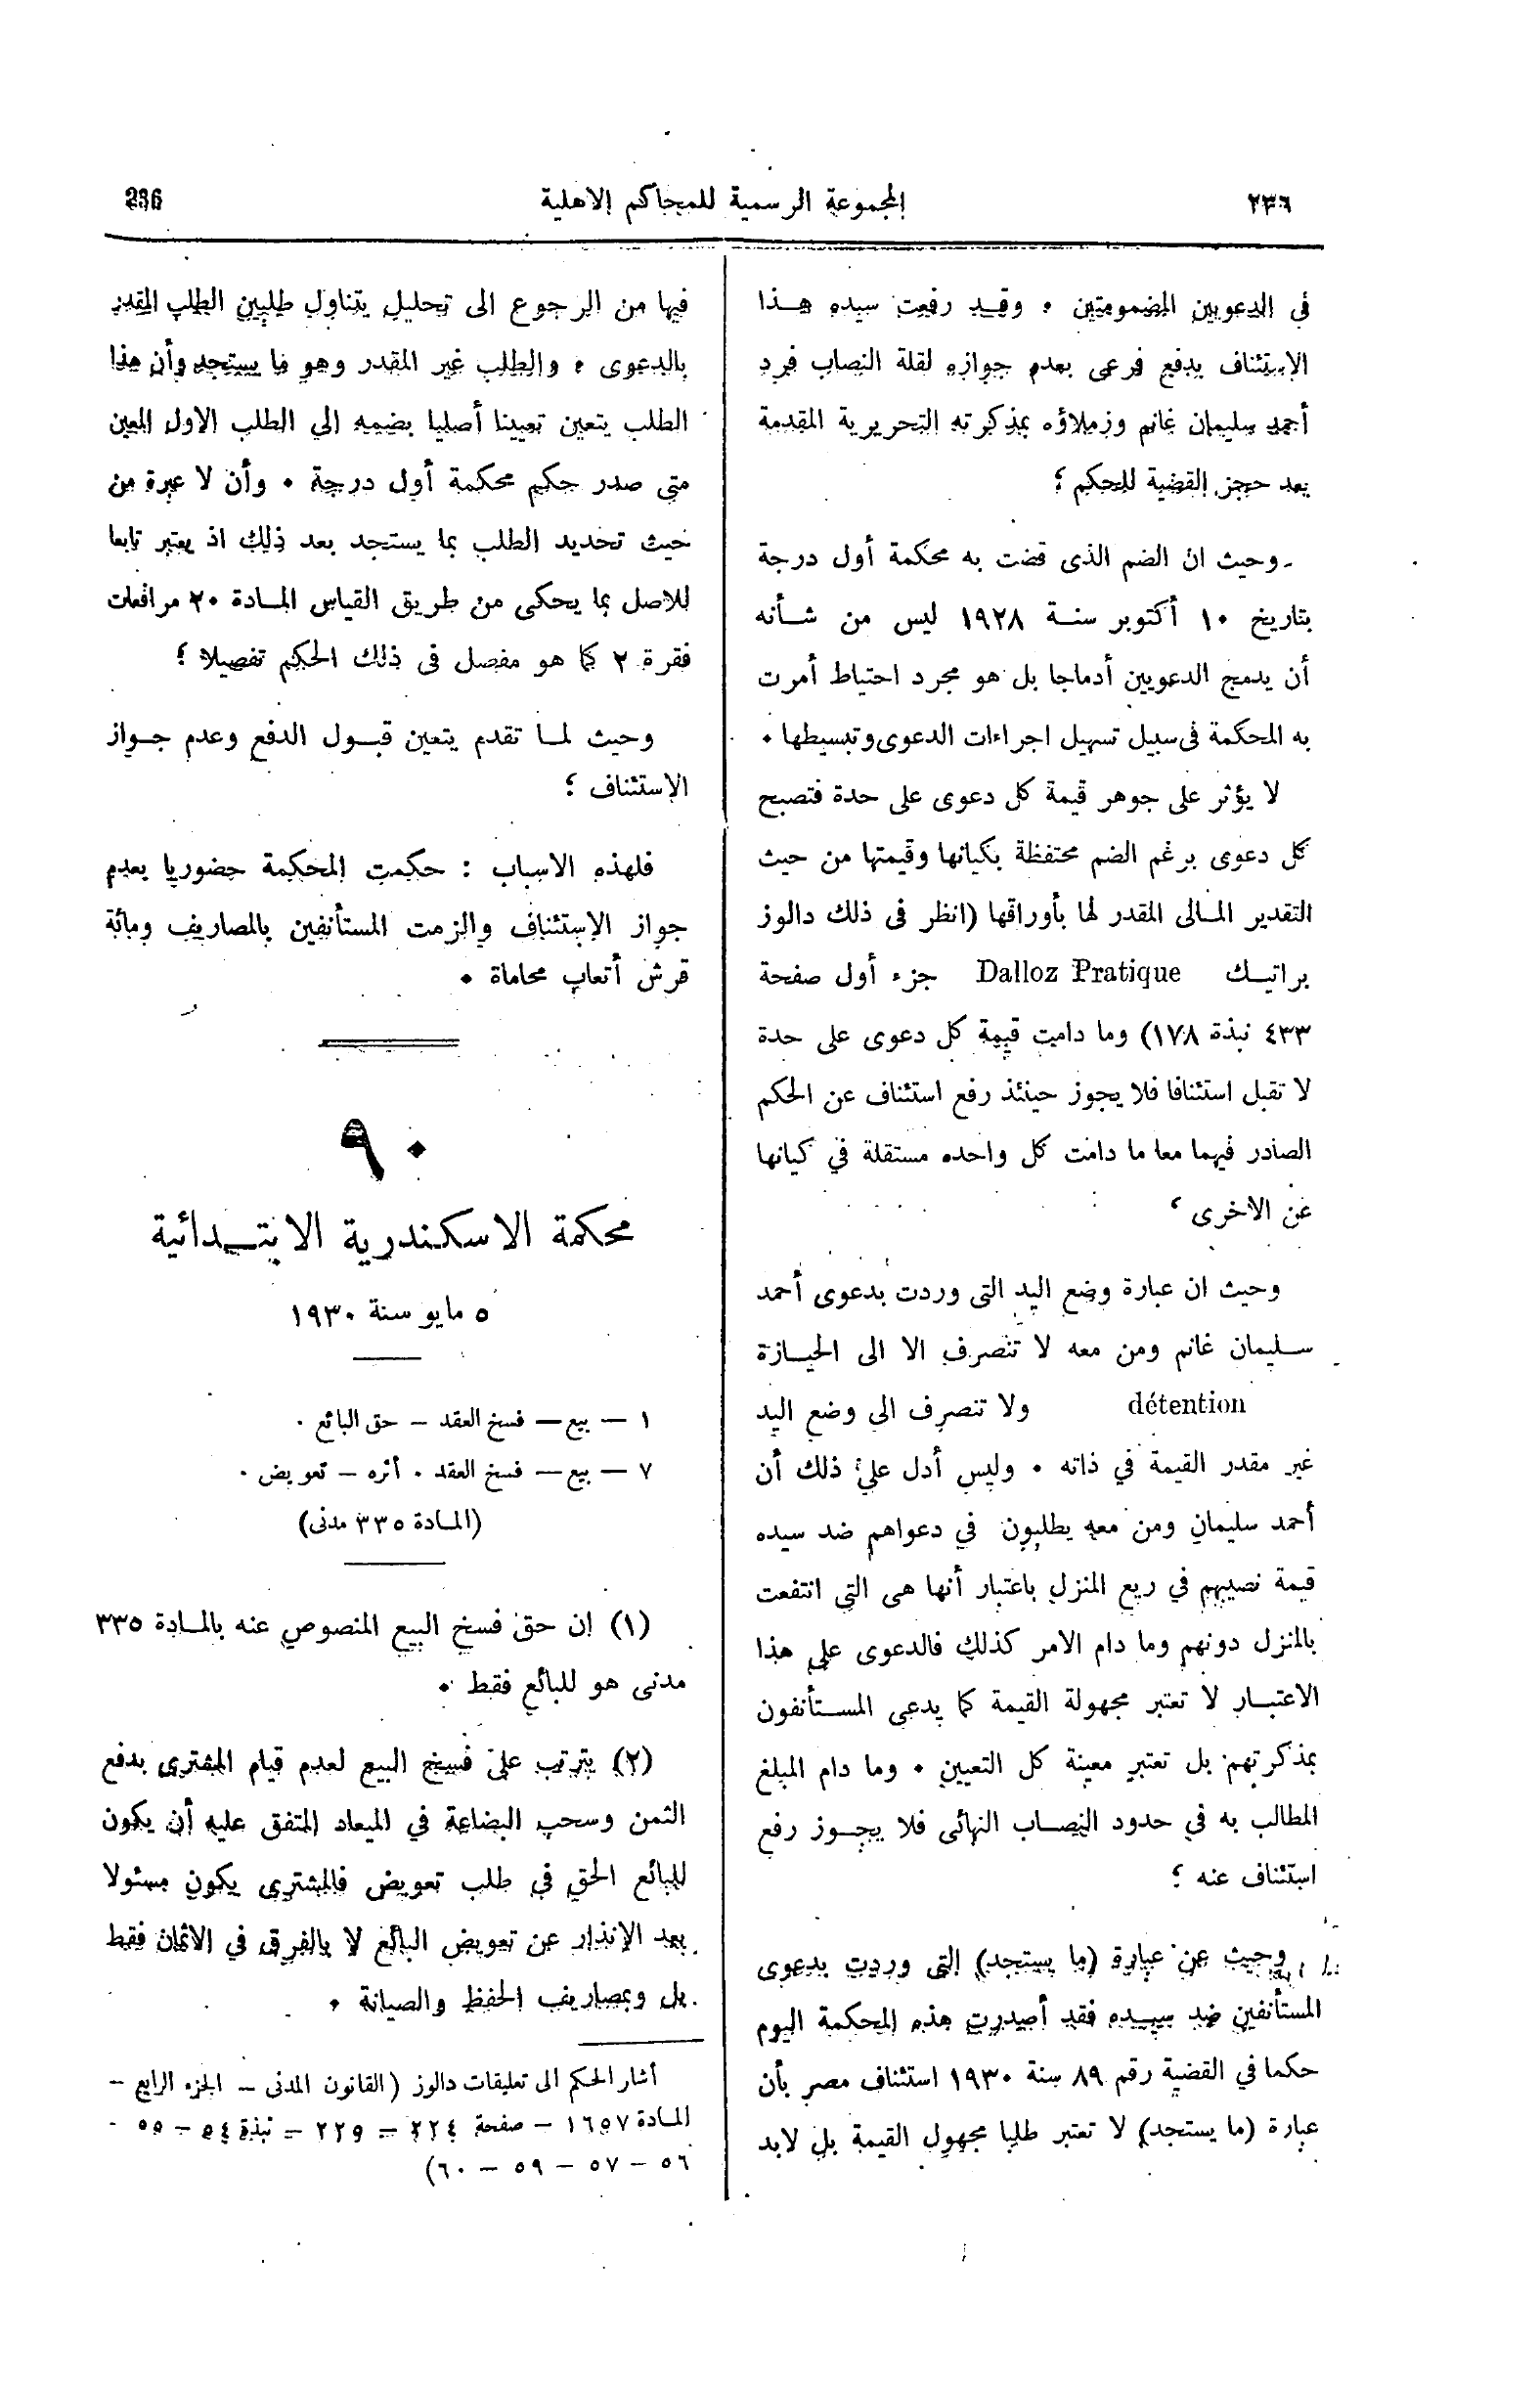 ٢٣٦
المجموعة الرسمية للمحاكم الاهلية
236
فى الدعويين المضمومتين ٠ وقد رفعت سيده هذا
الاستئناف بدفع فرعى بعدم جوازه لقلة النصاب فرد
أحمد سليمان غانم وزملاؤه بمذكرته التحريرية المقدمة
بعد حجز القضية للحكم ؛
وحيث ان الضم الذى قضت به محكمة أول درجة
بتاريخ ١٠ أكتوبر سنة ١٩٢٨ ليس من شأنه
أن يدمج الدعويين أدماجا بل هو مجرد احتياط أمرت
به المحكمة فى سبيل تسهيل اجراءات الدعوى وتبسيطها ٠
لا يؤثر على جوهر قيمة كل دعوى على حدة فتصبح
كل دعوى برغم الضم محتفظة بكيانها وقيمتها من حيث
التقدير المالى المقدر لها بأوراقها (انظر فى ذلك دالوز
براتيك Dalloz Pratique جزء أول صفحة
٤٣٣ نبذة ١٧٨) وما دامت قيمة كل دعوى على حدة
لا تقبل استئنافا فلا يجوز حينئذ رفع استئناف عن الحكم
الصادر فيهما معا ما دامت كل واحده مستقلة في كيانها
عن الاخرى ؛
وحيث ان عبارة وضع اليد التى وردت بدعوى أحمد
سليمان غانم ومن معه لا تنصرف الا الى الحيازة
détention ولا تنصرف الى وضع اليد
غير مقدر القيمة في ذاته ٠ وليس أدل على ذلك أن
أحمد سليمان ومن معه يطلبون في دعواهم ضد سيده
قيمة نصيبهم في ريع المنزل باعتبار أنها هى التى انتفعت
بالمنزل دونهم وما دام الامر كذلك فالدعوى على هذا
الاعتبار لا تعتبر مجهولة القيمة كما يدعى المستأنفون
بمذكرتهم بل تعتبر معينة كل التعيين ٠ وما دام المبلغ
المطالب به في حدود النصاب النهائى فلا يجوز رفع
استئناف عنه ؛
وحيث عن عبارة (ما يستجد) التى وردت بدعوى
المستأنفين ضد سيده فقد أصدرت هذه المحكمة اليوم
حكما في القضية رقم ٨٩ سنة ١٩٣٠ استئناف مصر بأن
عبارة (ما يستجد) لا تعتبر طلبا مجهول القيمة بل لابد
فيها من الرجوع الى تحليل يتناول طلبين الطلب المقدر
بالدعوى ٠ والطلب غير المقدر وهو ما يستجد وأن هذا
الطلب يتعين تعيينا أصليا بضمه الى الطلب الاول المعين
متى صدر حكم محكمة أول درجة ٠ وأن لا عبرة من
حيث تحديد الطلب بما يستجد بعد ذلك اذ يعتبر تابعا
للاصل بما يحكى من طريق القياس المادة ٢٠ مرافعات
فقرة ٢ كما هو مفصل فى ذلك الحكم تفصيلا ؛
وحيث لما تقدم يتعين قبول الدفع وعدم جواز
الاستئناف ؛
فلهذه الاسباب : حكمت المحكمة حضوريا بعدم
جواز الاستئناف والزمت المستأنفين بالمصاريف ومائة
قرش أتعاب محاماة ٠
٩٠
محكمة الاسكندرية الابتدائية
٥ مايو سنة ١٩٣٠
١ — بيع — فسخ العقد — حق البائع ٠
٧ — بيع — فسخ العقد ٠ أثره — تعويض ٠
(المادة ٣٣٥ مدنى)
(١) إن حق فسخ البيع المنصوص عنه بالمادة ٣٣٥
مدنى هو للبائع فقط ٠
(٢) يترتب على فسخ البيع لعدم قيام المشترى بدفع
الثمن وسحب البضاعة في الميعاد المتفق عليه أن يكون
للبائع الحق في طلب تعويض فالمشترى يكون مسئولا
بعد الإنذار عن تعويض البائع لا بالفرق في الاثمان فقط
بل وبمصاريف الحفظ والصيانة ٠
أشار الحكم الى تعليقات دالوز (القانون المدنى — الجزء الرابع —
المادة ١٦٥٧ — صفحة ٢٢٤ — ٢٢٩ — نبذة ٥٤ — ٥٥ -
٥٦ — ٥٧ — ٥٩ — ٦٠)